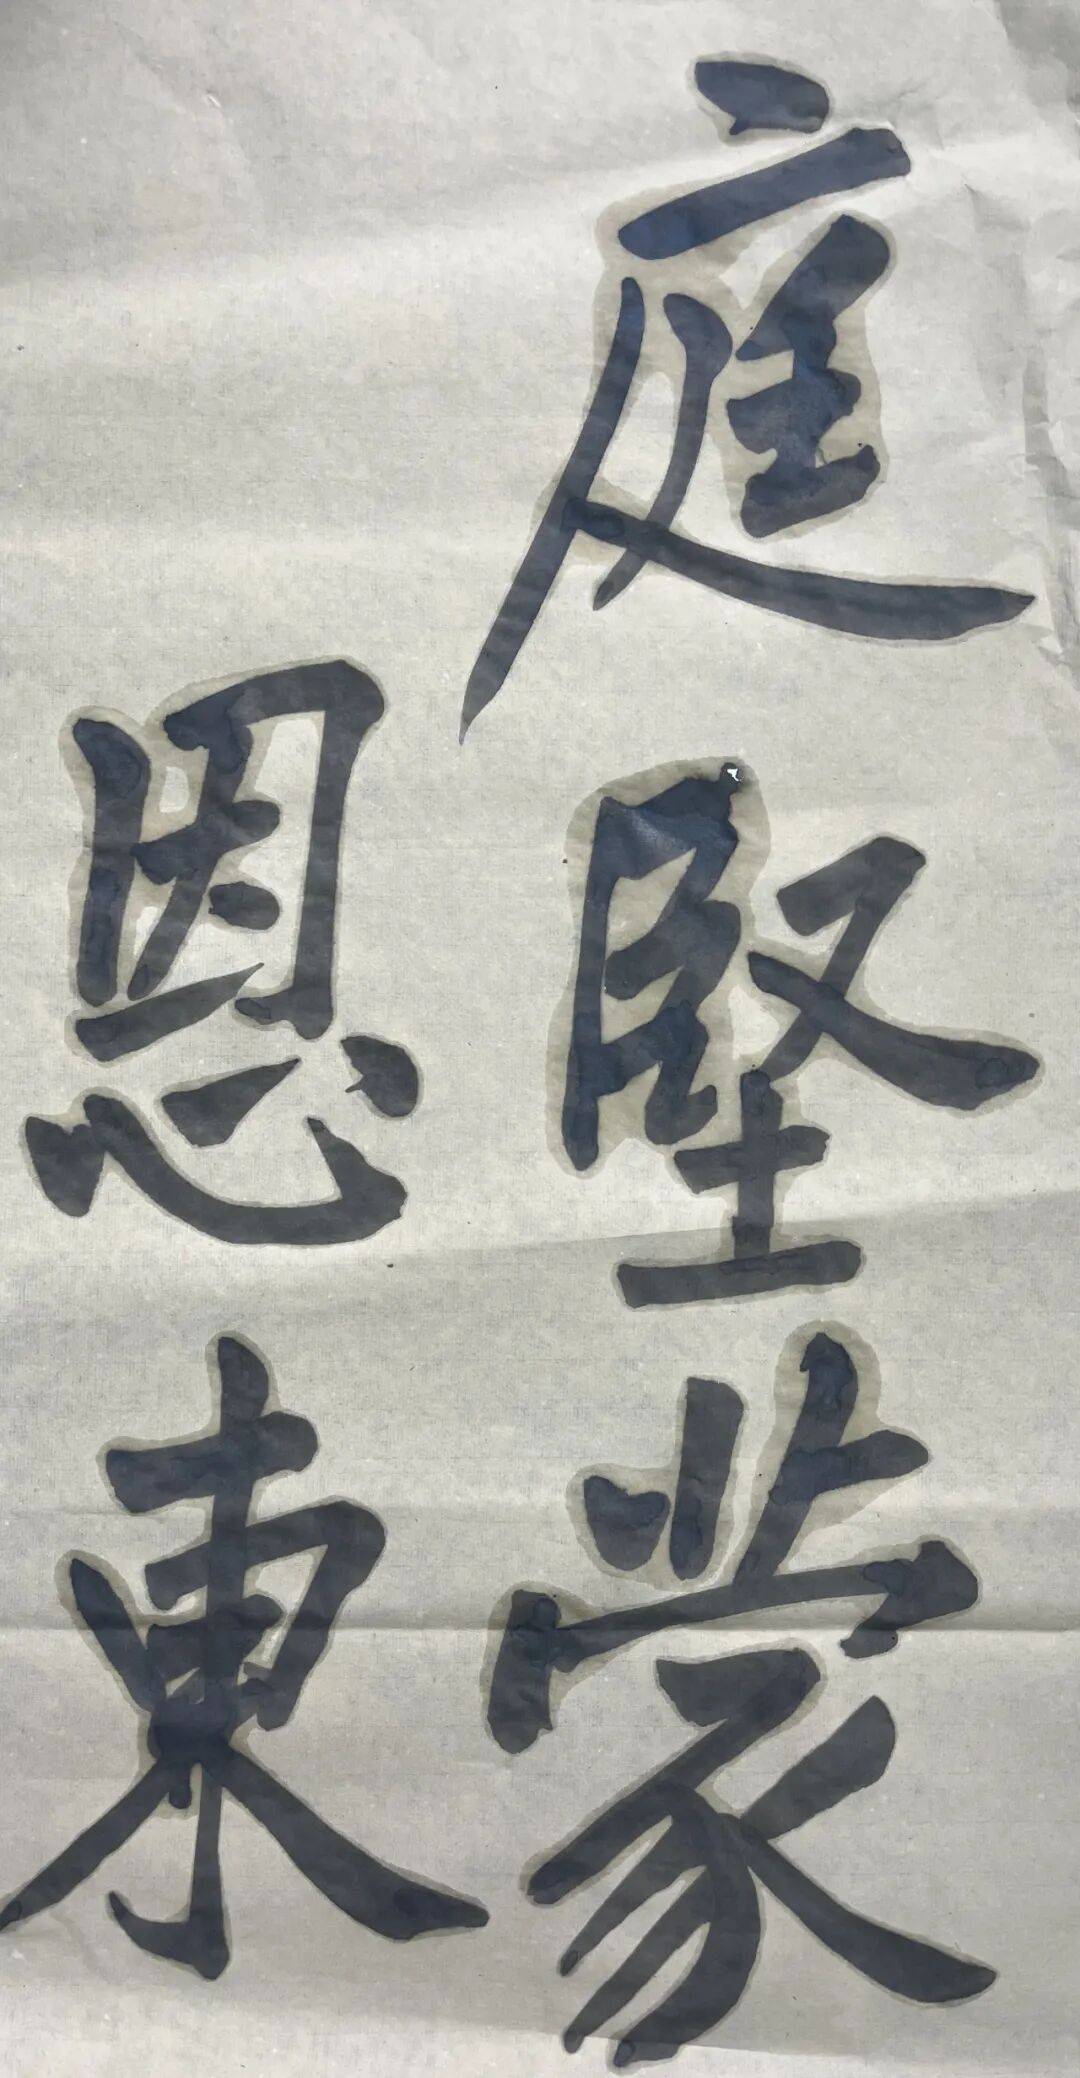 庭堅蒙
恩東